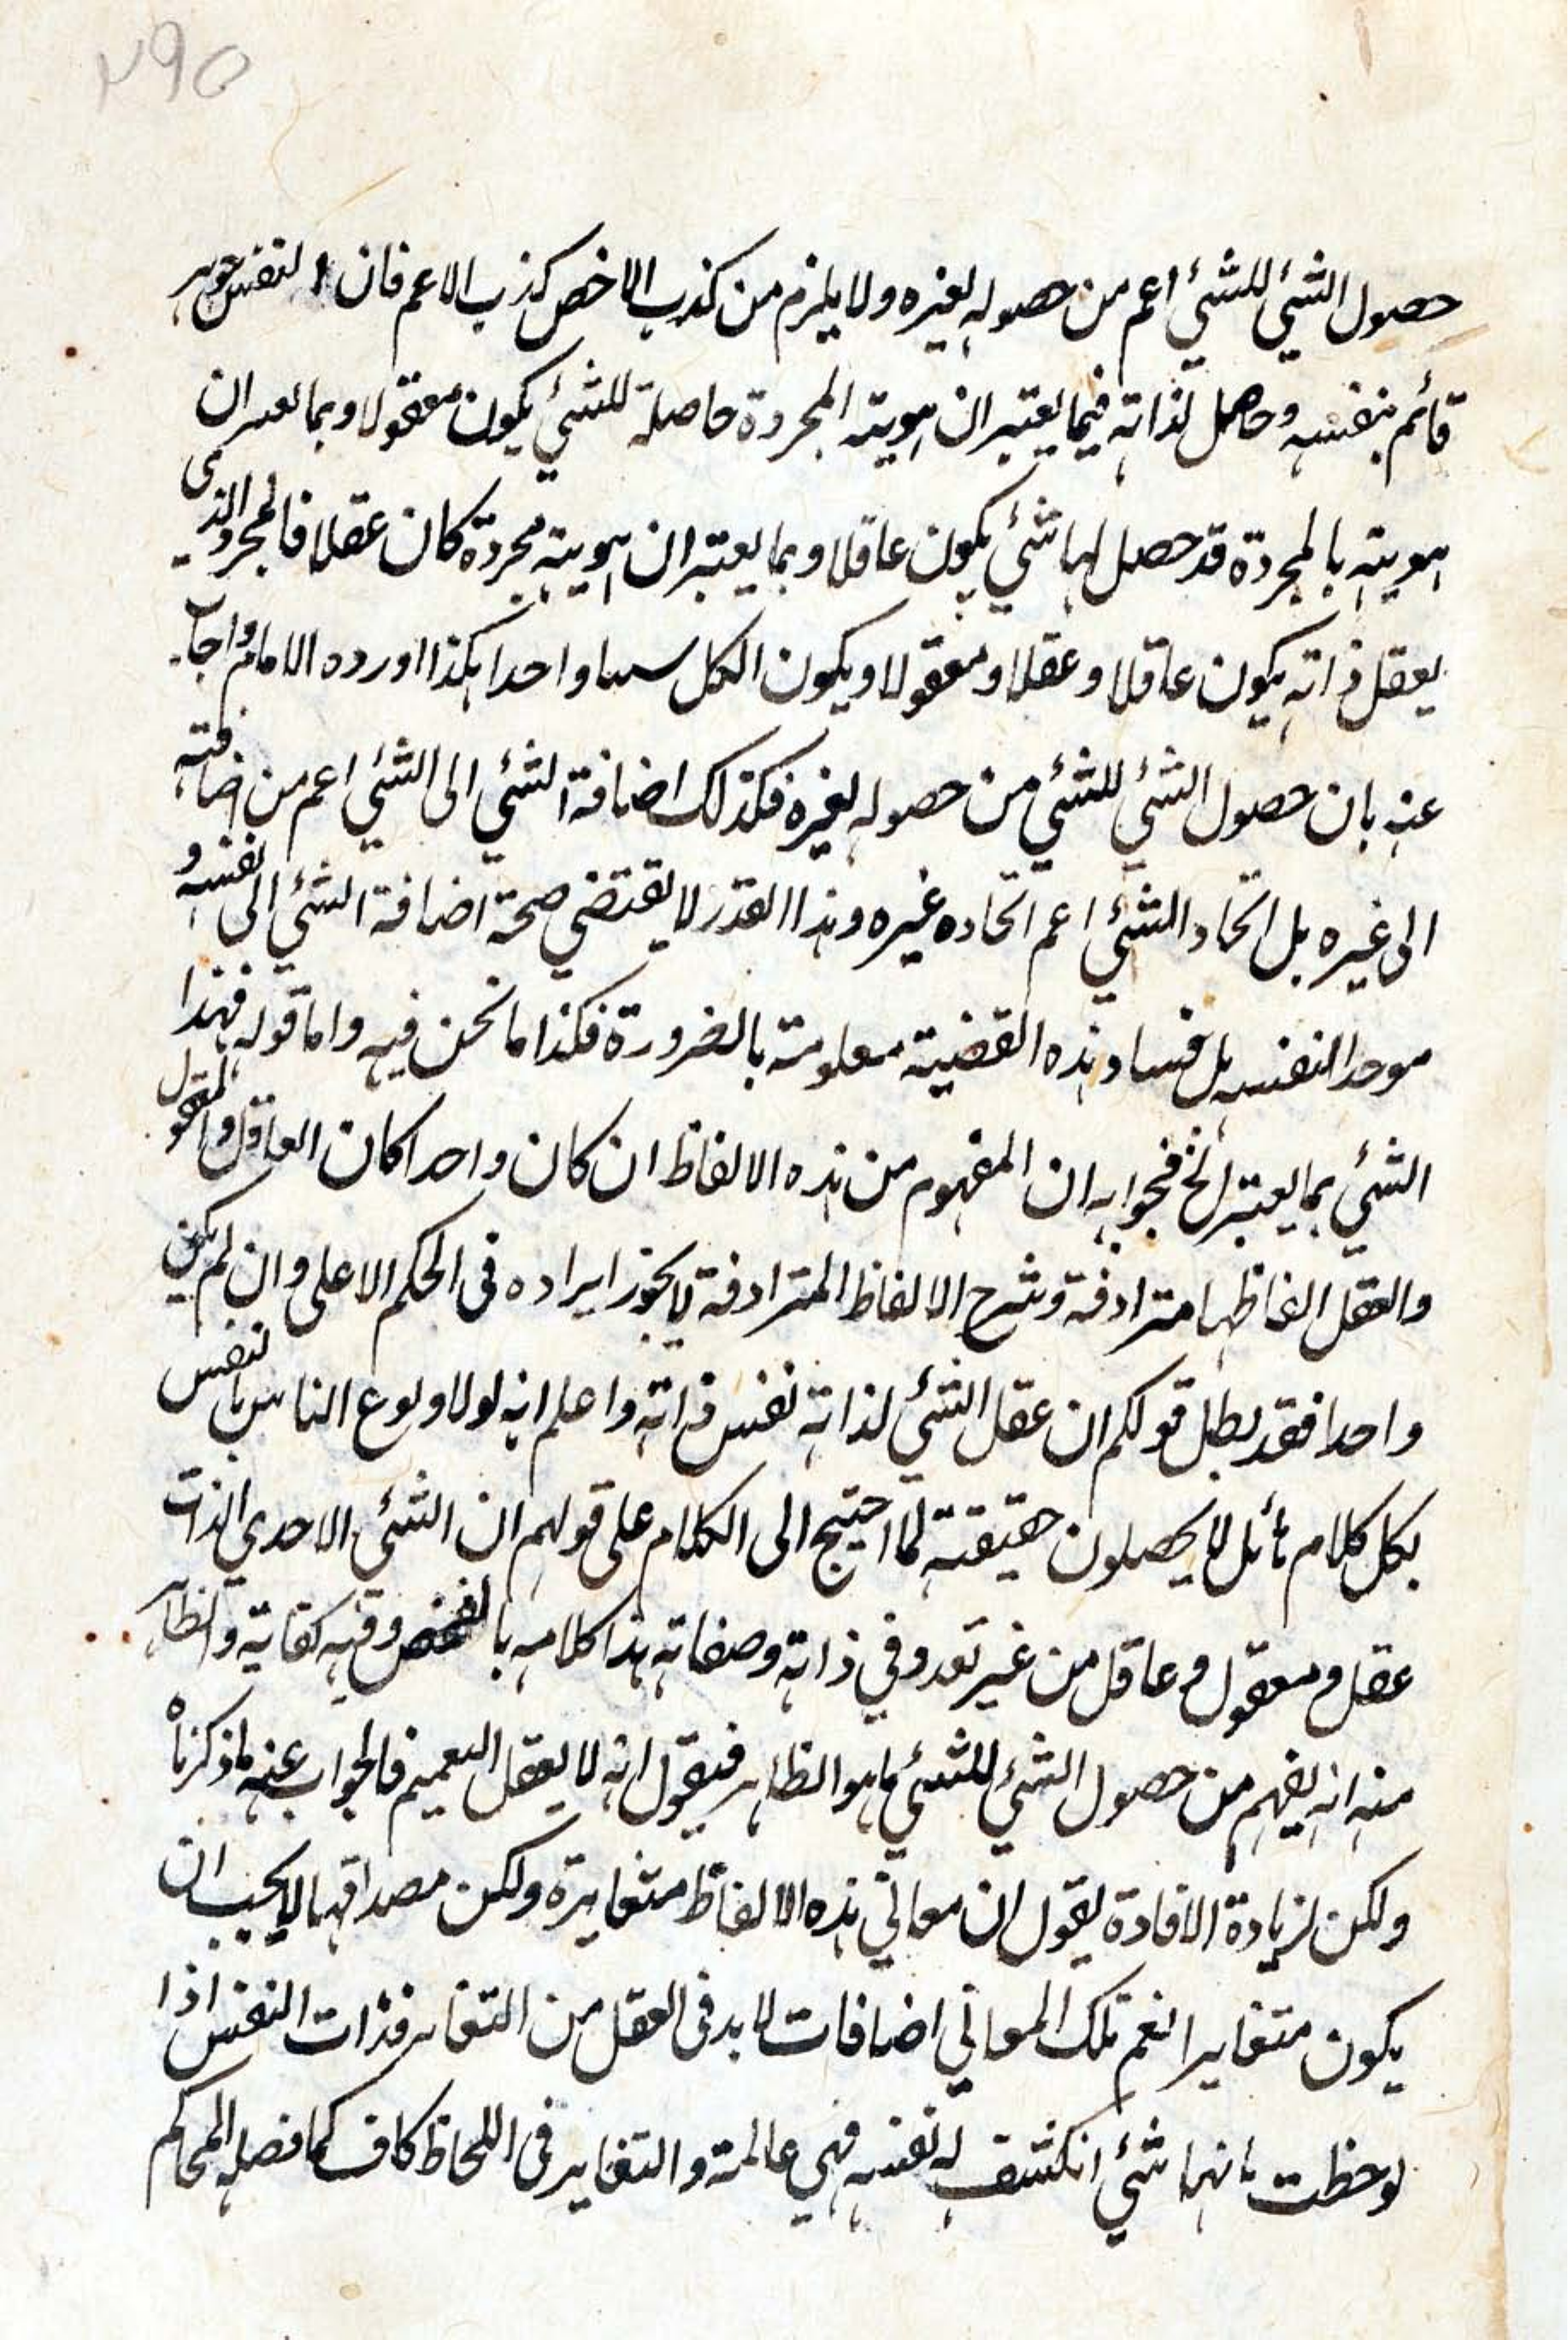 ٢٩٥
حصول الشئ للشئ اعم من حصوله لغيره ولا يلزم من كذب الاخص كذب الاعم فان النفس جوهر
قائم بنفسه وحاصل لذاته فيما يعتبر ان هويته المجردة حاصلة للشئ يكون معقولا وبما يعتبر ان
هويته بالمجردة قد حصل لها شئ يكون عاقلا وبما يعتبر ان هويته مجردة كان عقلا فالمجرد الذى
يعقل ذاته يكون عاقلا وعقلا ومعقولا ويكون الكل شيئا واحدا هكذا اورده الامام واجاب
عنه بان حصول الشئ للشئ من حصوله لغيره فكذلك اضافة الشئ الى الشئ اعم من اضافته
الى غيره بل اتحاد الشئ اعم اتحاده غيره وهذا القدر لا يقتضي صحة اضافة الشئ الى نفسه و
موحدا لنفسه بل فساد هذه القضية معلومة بالضرورة فكذا ما نحن فيه واما قوله فهذا
الشئ بما يعتبر الخ فجوابه ان المفهوم من هذه الالفاظ ان كان واحدا كان العاقل والمعقول
والعقل الفاظها مترادفة وشرح الالفاظ المترادفة لا يجوز ايراده فى الحكم الاعلى وان لم يكن
واحدا فقد بطل قولكم ان عقل الشئ لذاته نفس ذاته واعلم انه لولا ولوع الناس بالنفس
بكل كلام هائل لا يحصلون حقيقته لما احتيج الى الكلام على قولهم ان الشئ الاحدي الذات
عقل ومعقول وعاقل من غير تعدد في ذاته وصفاته هذا كلامه بالفحص وفيه كفاية والظاهر
منه انه يفهم من حصول الشئ للشئ ما هو الظاهر فيقول انه لا يعقل التعميم فالجواب عنه ما ذكرناه
ولكن لزيادة الافادة يقول ان معاني هذه الالفاظ متغايرة ولكن مصداقها لا يجب ان
يكون متغايرا نعم تلك المعاني اضافات لا بد فى العقل من التغاير فذات النفس اذا
لوحظت بانها شئ انكشف له نفسه فهي عالمة والتغاير فى اللحاظ كاف كما فصله المحاكم